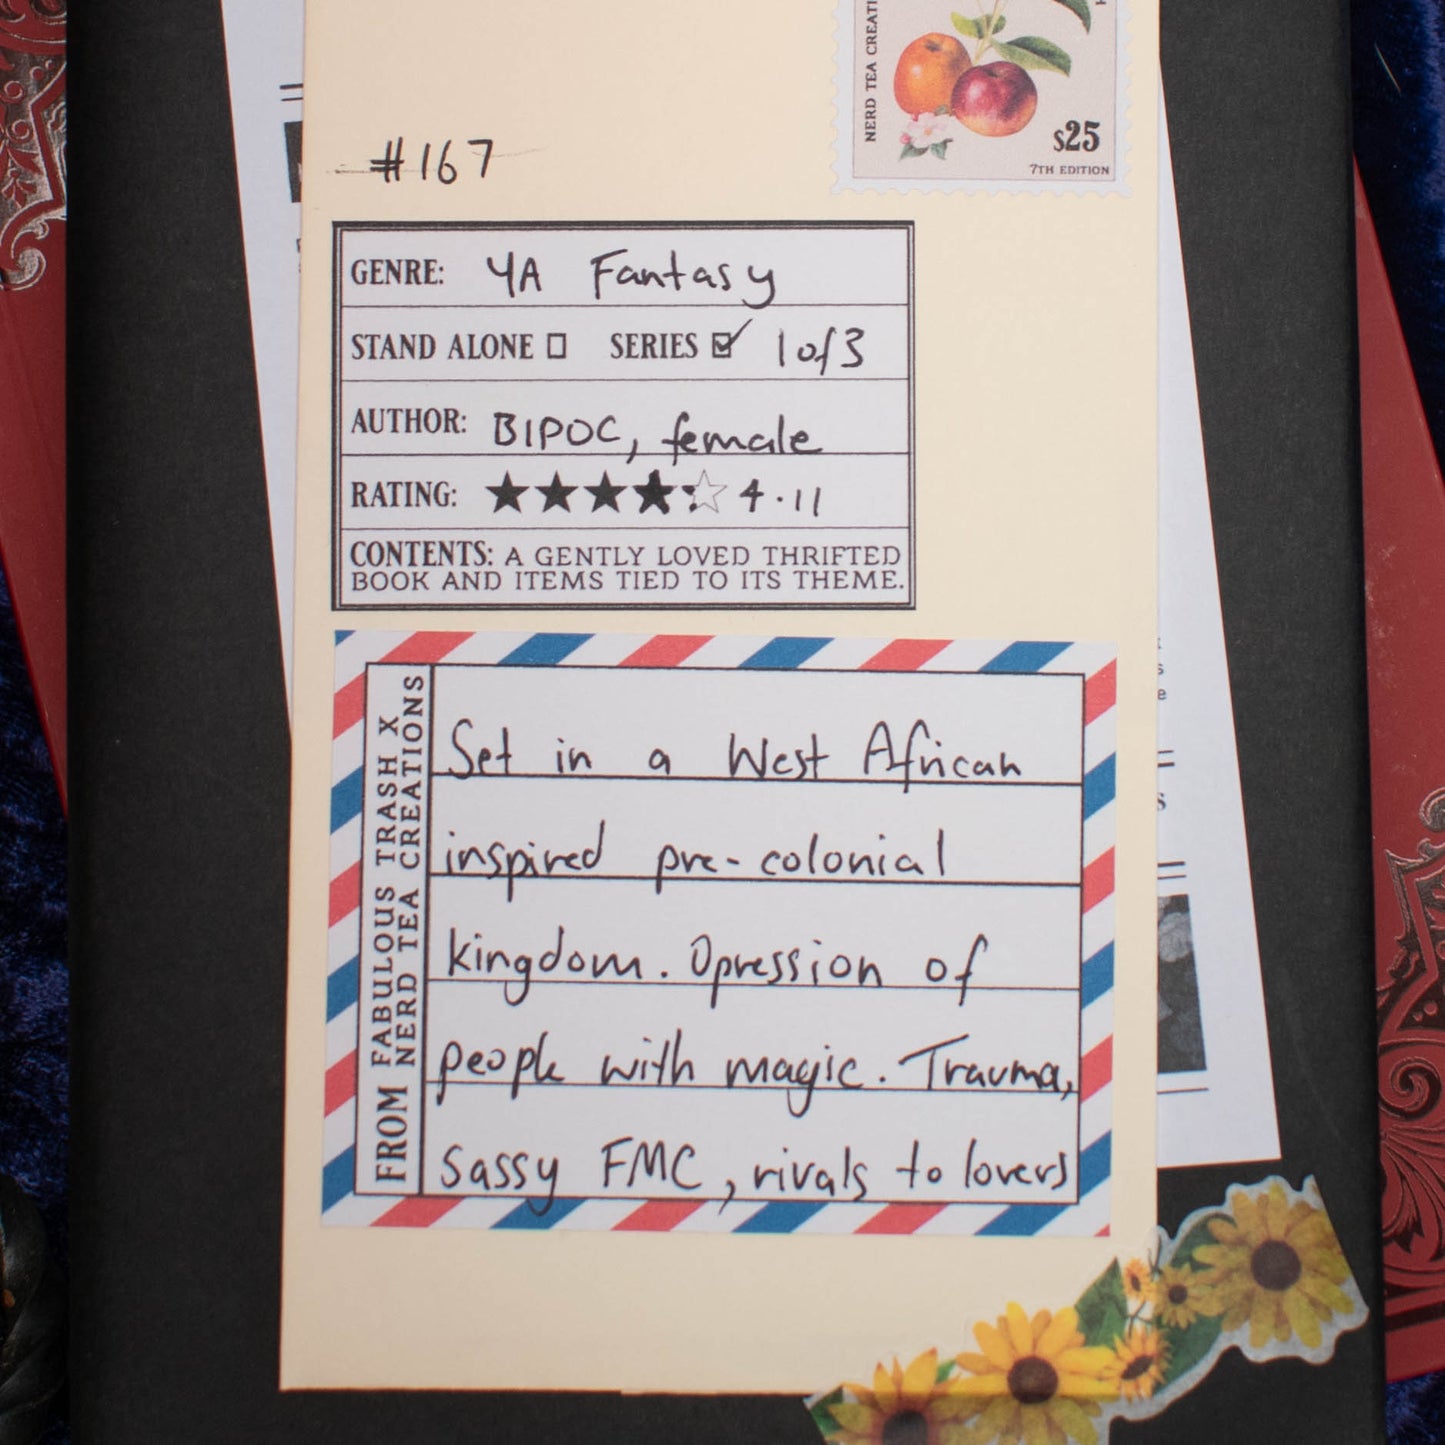 NERD TEA CREATI
$25
7TH EDITION
#167
GENRE: YA Fantasy
STAND ALONE SERIES 1 of 3
AUTHOR: BIPOC, female
RATING: 4.11
CONTENTS: A GENTLY LOVED THRIFTED
BOOK AND ITEMS TIED TO ITS THEME.
FROM FABULOUS TRASH X
NERD TEA CREATIONS
Set in a West African
inspired pre-colonial
kingdom. Opression of
people with magic. Trauma,
sassy FMC, rivals to lovers